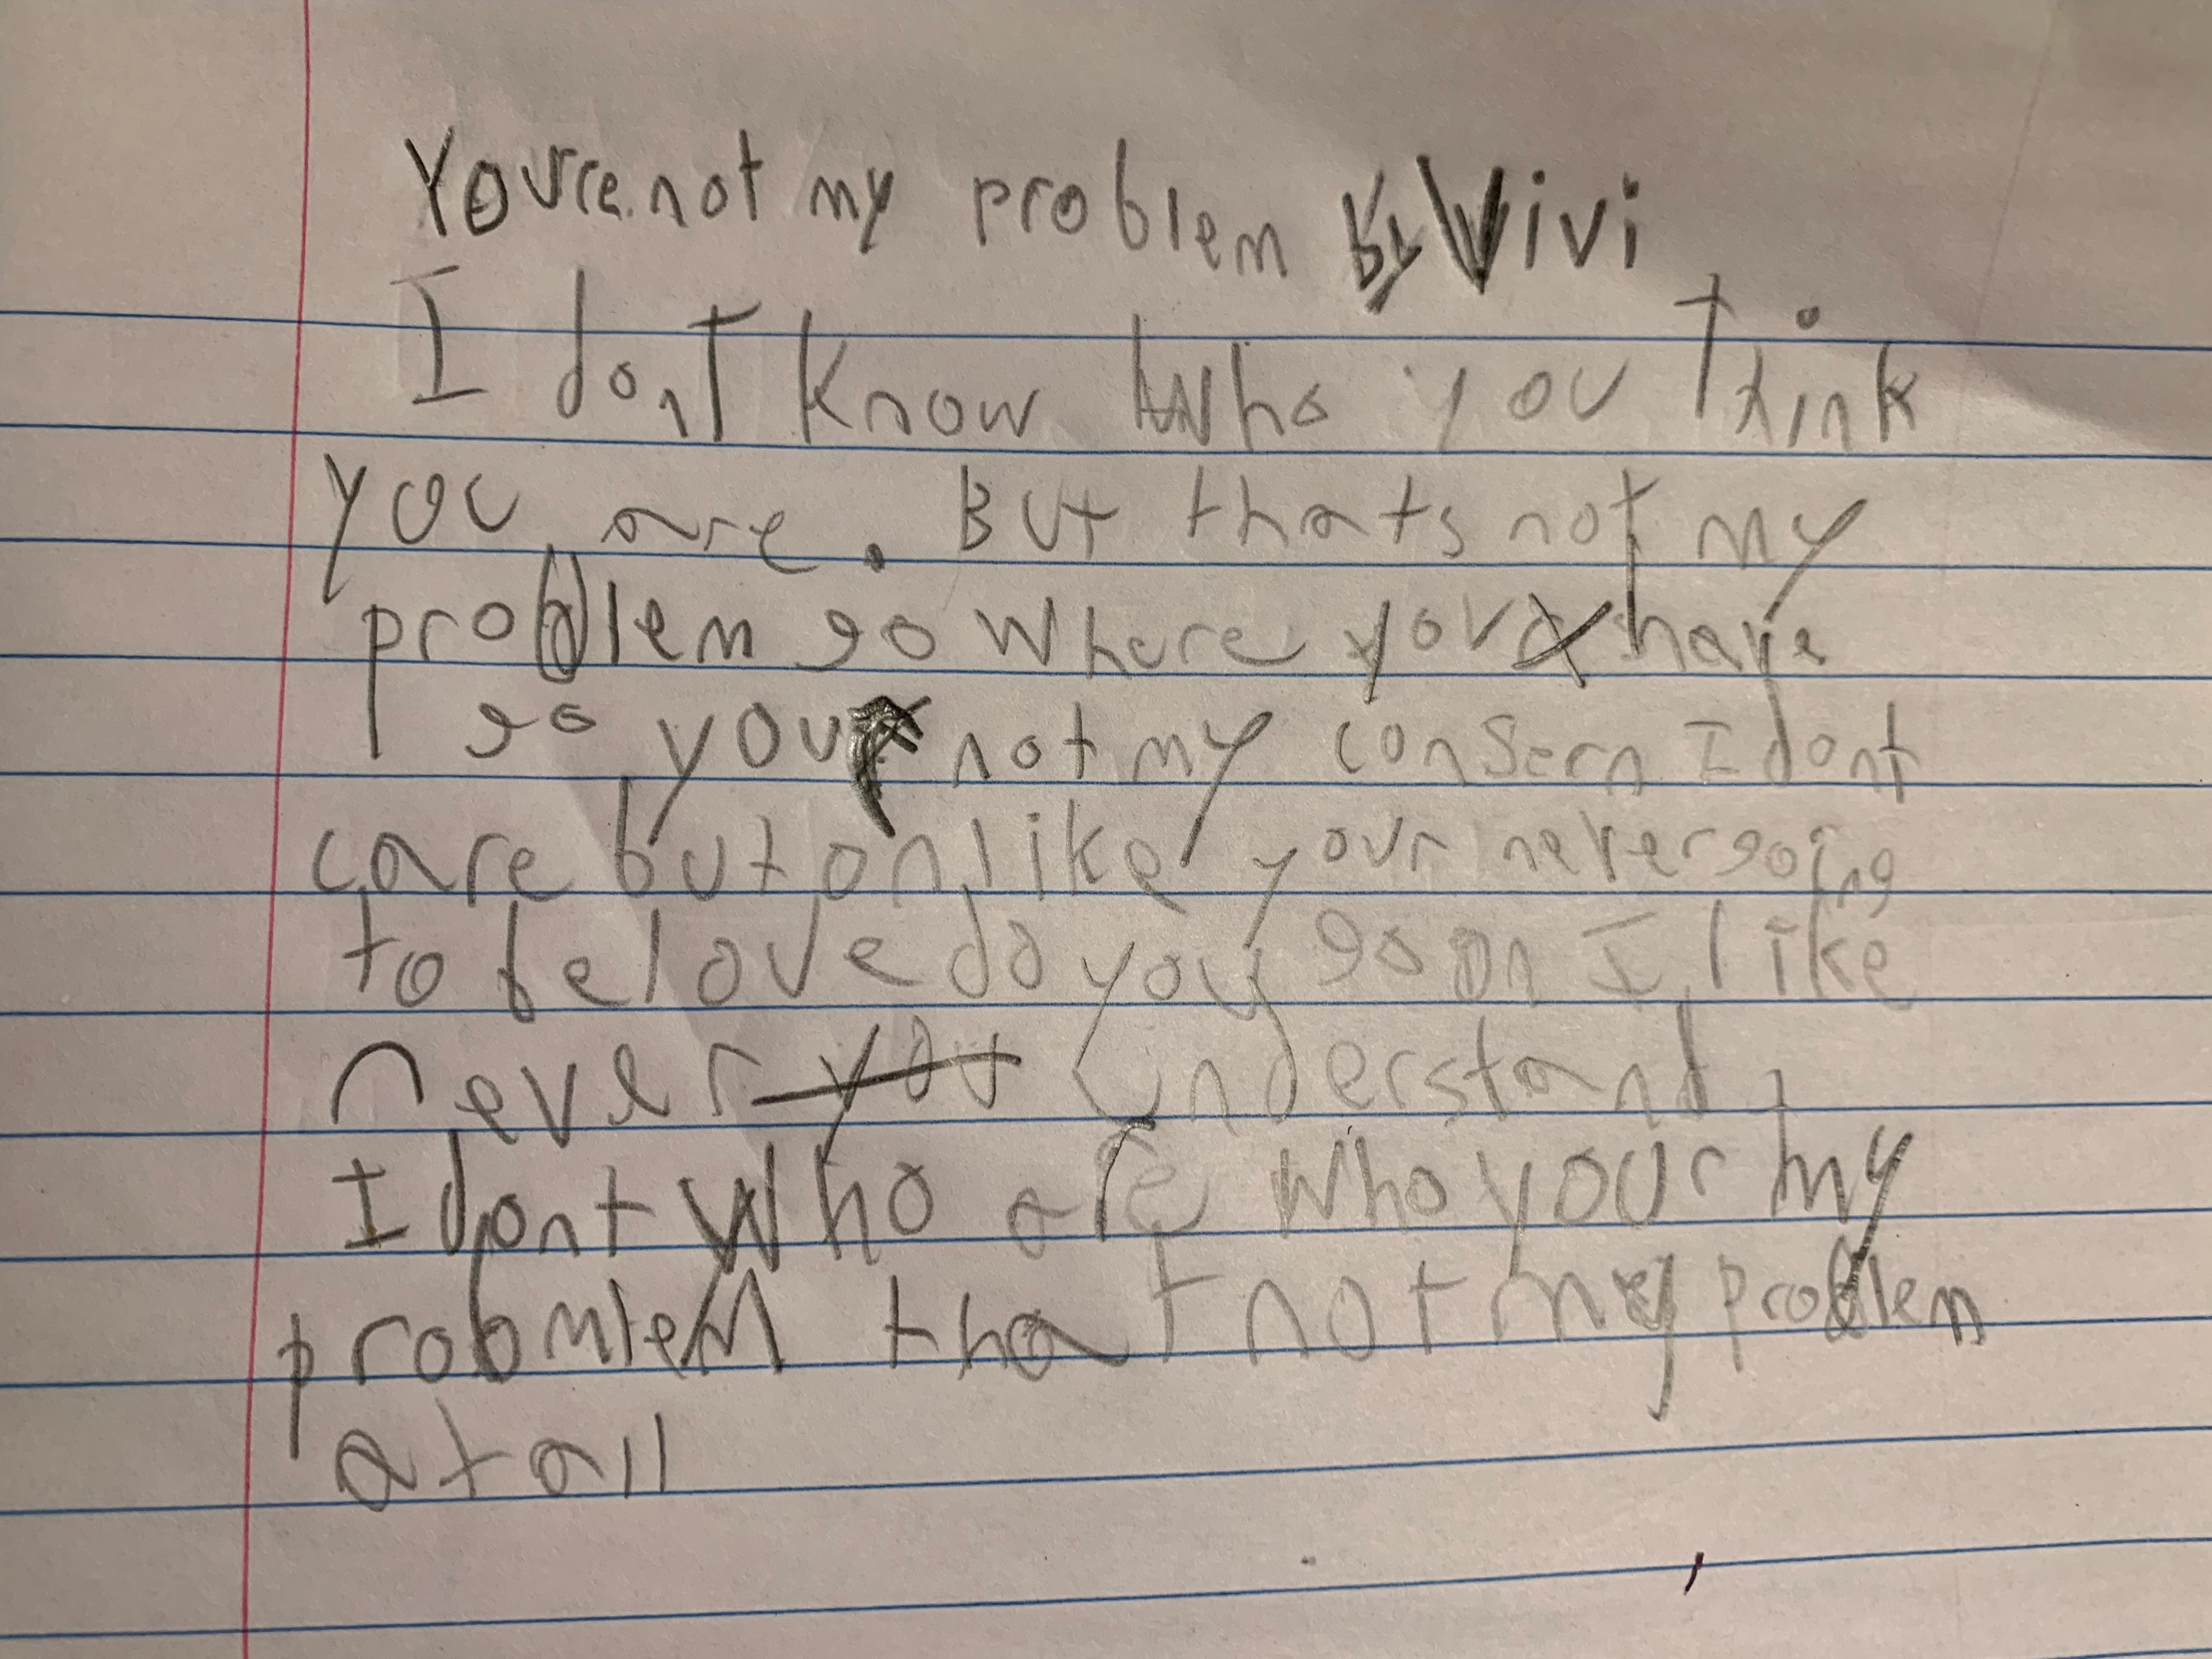 Youre not my problem by Vivi
I dont know who you think
you are. But thats not my
problem go where you have
go your not my consern I dont
care but onlike your never going
to be love do you go on I like
never you understand
I dont who are who your my
probmlem that not my problem
at all